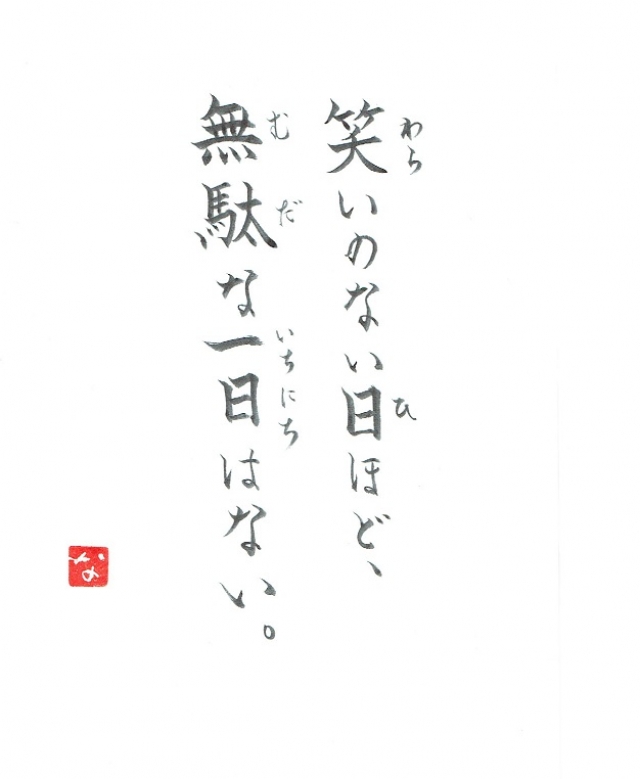 笑いのない日ほど、
わら
ひ
無駄な一日はない。
むだ
いちにち
な